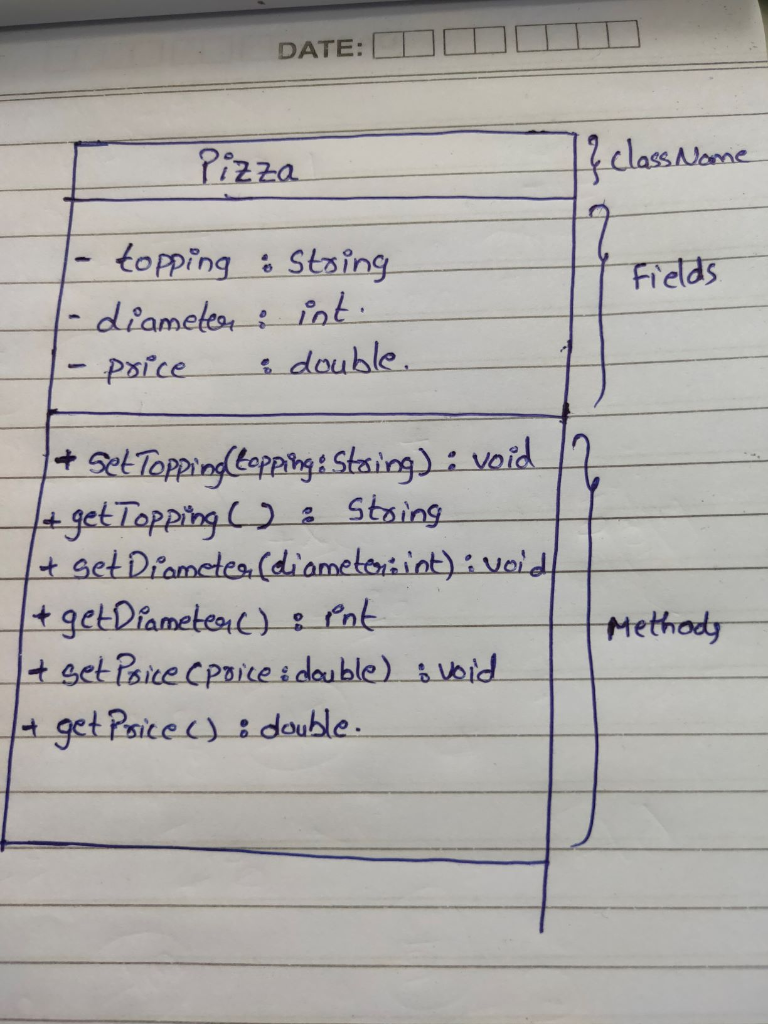 DATE:
Pizza
} ClassName
- topping : String
- diameter : int.
- price : double.
Fields
+ setTopping(topping:String) : void
+ getTopping() : String
+ setDiameter(diameter:int) : void
+ getDiameter() : int
+ setPrice(price:double) : void
+ getPrice() : double.
Methods